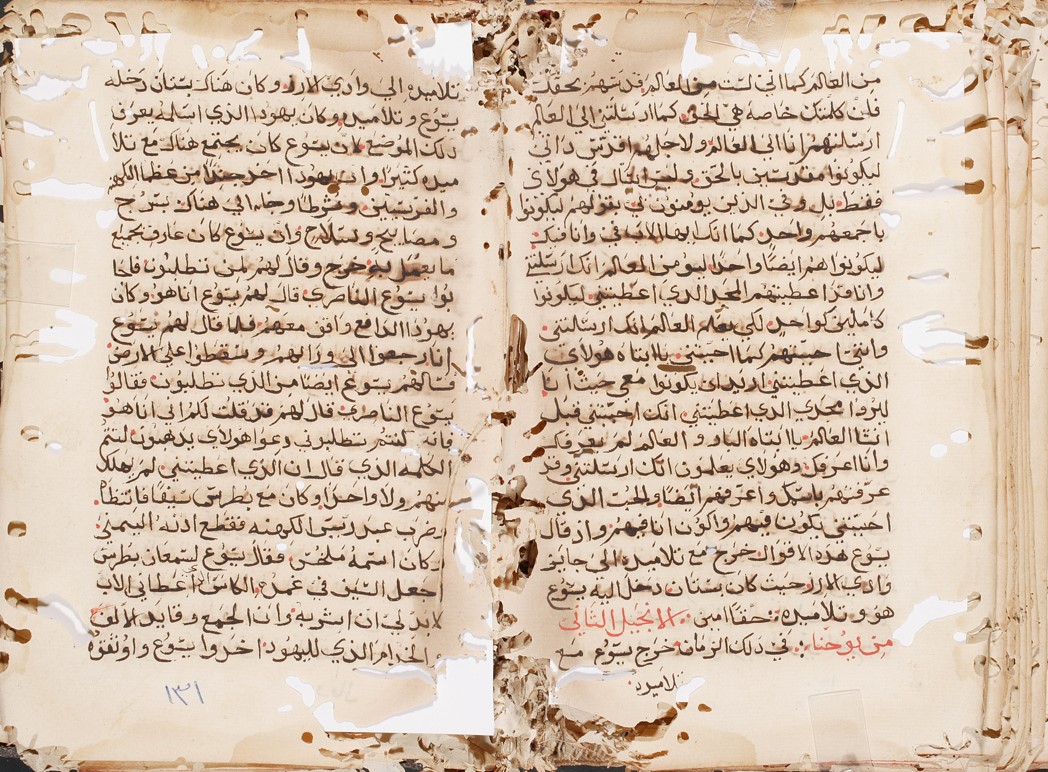 من العالم كما اني لست من العالم قدسهم بحقك
فان كلمتك خاصه هي الحق كما ارسلتني الي العالم
ارسلتهم انا الي العالم ولاجلهم اقدس داتي
ليكونوا مقدسين بالحق وليس اسال في هولاي
فقط بل وفي الدين يومنون بي بقولهم ليكونوا
باجمعهم واحد كما انك يا ابه في وانا فيك
ليكونوا هم ايضا واحدا ليومن العالم انك ارسلتني
وانا قد اعطيتهم المجد الدي اعطيتني ليكونوا
كاملين كواحد لكي يعلم العالم انك ارسلتني
وانني احببتهم كما احببتني يا ابتاه هولاي
الدي اعطيتني اريد ان يكونوا معي حيث انا
ليروا مجدي الدي اعطيتني انك احببتني قبل
انشا العالم يا ابتاه البار و العالم لم يعرفك
وانا اعرفك وهولاي يعلمون انك ارسلتني وقد
عرفتهم باسمك واعرفهم ايضا والحب الدي
احببتني يكون فيهم واكون انا فيهم واد قال
يسوع هده الاقوال خرج مع تلاميده الي جانب
وادي الارز حيث كان بستان دخل اليه يسوع
هو وتلاميده حقا امين الانجيل التاني
من يوحنا في دلك الزمان خرج يسوع مع
تلاميده
تلاميده الي وادي الارز وكان هناك بستان دخله
يسوع وتلاميده وكان يهودا الدي اسلمه يعرف
دلك الموضع لان يسوع كان يجتمع هناك مع تلا
ميده كثيرا وان يهودا اخد جندا من عظما الكهنه
والفريسين وشرطا وجا الي هناك بسرج
ومصابيح وسلاح وان يسوع كان عارف بجميع
ما يعمل به خرج وقال لهم من تطلبون فاجا
بوا يسوع الناصري قال لهم يسوع انا هو وكان
يهودا الدافع واقف معهم فلما قال لهم يسوع
انا رجعوا الي ورايهم وسقطوا علي الارض
فسالهم يسوع ايضا من الدي تطلبون فقالوا
يسوع الناصري قال لهم قد قلت لكم اني انا هو
فانه كنتم تطلبوني دعوا هولاي يدهبون لتتم
الكلمه الدي قال ان الدي اعطيتني لم يهلك
منهم ولا واحدا وكان مع بطرس سيفا فانتضا
وضرب عبد ريس الكهنه فقطع ادنه اليمني
وكان اسمه ملخس فقال يسوع لسمعان بطرس
اجعل السيف في غمده الكاس اعطاني الاب
لابد لي ان اشربه وان الجمع وقايد الالف
والخدام الدي لليهود اخدوا يسوع واوتقوه
١٣١